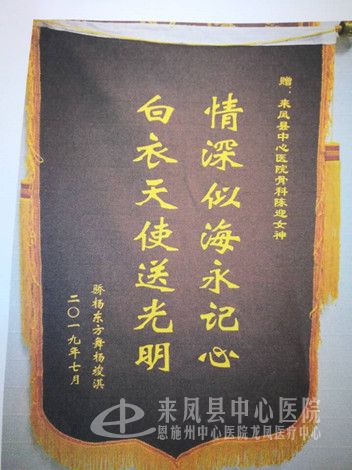 赠：来凤县中心医院骨科陈迎女神
情深似海永记心
白衣天使送光明
骄杨东方舞杨竣淇
二〇一九年七月
来凤县中心医院
恩施州中心医院龙凤医疗中心